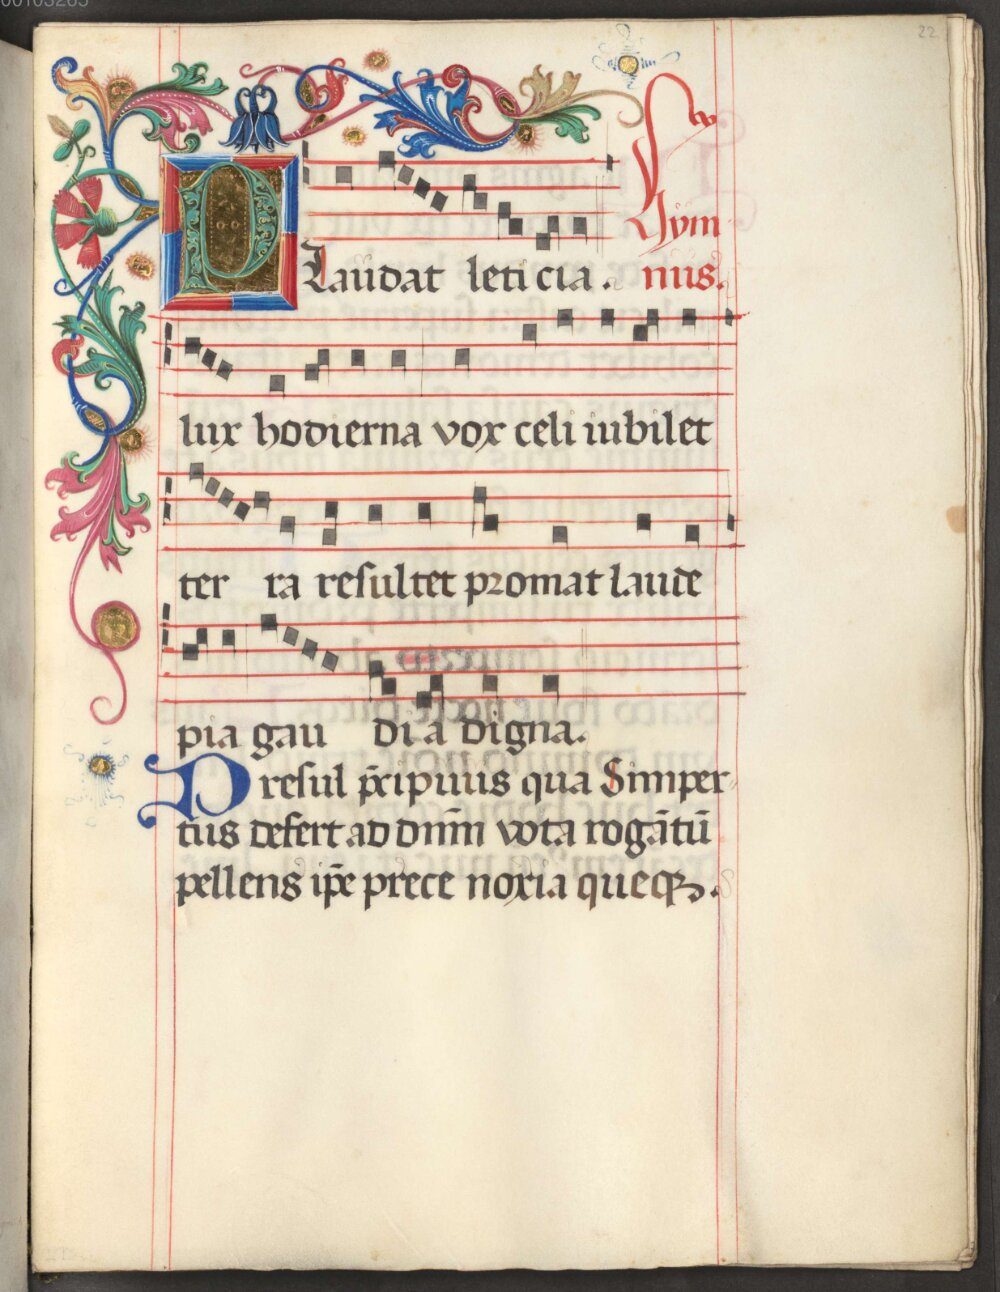 00103265
22
Hym
PLaudat leticia. nus.
lux hodierna vox celi iubilet
ter ra resultet promat laude
pia gau di a digna.
Presul p̄cipuus qua Simper
tus defert ad dn̄m vota rogātū
pellens ip̄e prece noxia queqꝫ.